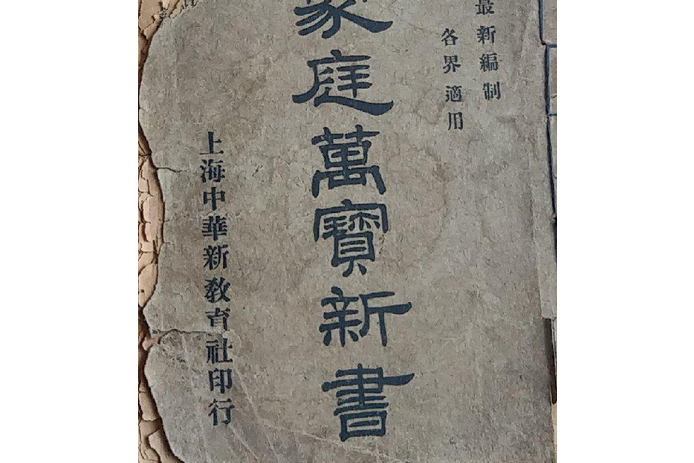 最新編制
各界適用
家庭萬寶新書
上海中華新教育社印行